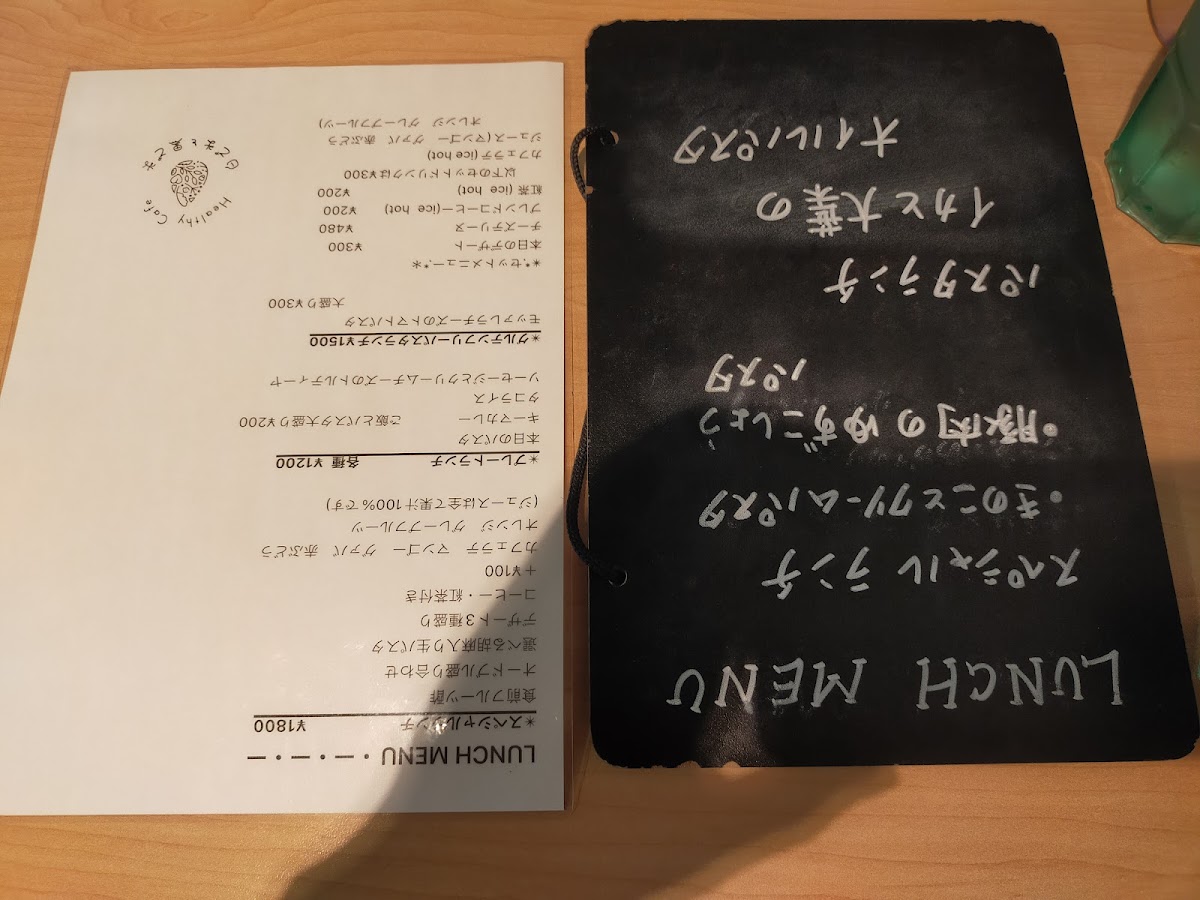 LUNCH MENU ・－・－・－
＊スペシャルランチ ¥1800
食前フルーツ酢
オードブル盛り合わせ
選べる胡麻入り生パスタ
デザート３種盛り
コーヒー・紅茶付き
＋¥100
カフェラテ マンゴー グァバ 赤ぶどう
オレンジ グレープフルーツ
(ジュースは全て果汁100％です)
＊プレートランチ 各種 ¥1200
本日のパスタ
キーマカレー ご飯とパスタ大盛り¥200
タコライス
ソーセージとクリームチーズのトルティーヤ
＊グルテンフリーパスタランチ¥1500
モッツァレラチーズのトマトパスタ
大盛り¥300
＊*.セットメニュー.*＊
本日のデザート ¥300
チーズテリーヌ ¥480
ブレンドコーヒー(ice hot) ¥200
紅茶 (ice hot) ¥200
以下のセットドリンクは¥300
カフェラテ(ice hot)
ジュース(マンゴー グァバ 赤ぶどう
オレンジ グレープフルーツ)
Healthy Cafe
LUNCH MENU
スペシャル ランチ
・きのことクリームパスタ
・豚肉のゆずこしょう
パスタ
パスタランチ
イカと大葉の
オイルパスタ